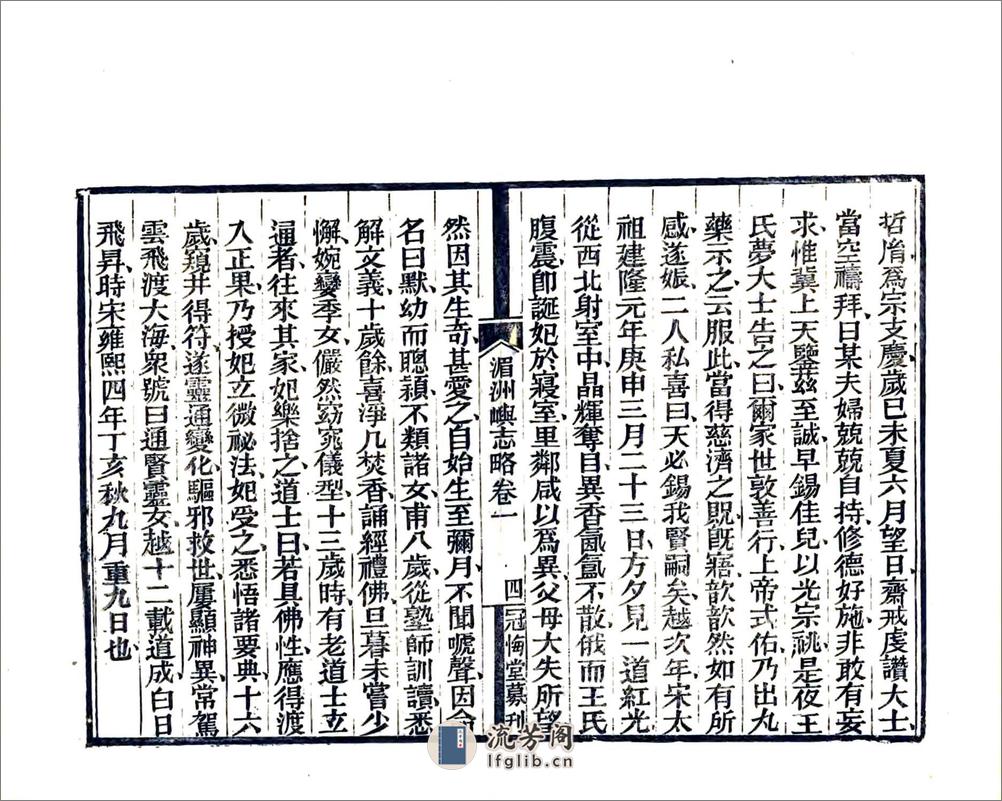 哲胤爲宗支慶歲己未夏六月望日齋戒虔讚大士
當空禱拜曰某夫婦兢兢自持修德好施非敢有妄
求惟冀上天鑒茲至誠早錫佳兒以光宗祧是夜王
氏夢大士告之曰爾家世敦善行上帝式佑乃出丸
藥示之云服此當得慈濟之貺既寤歆歆然如有所
感遂娠二人私喜曰天必錫我賢嗣矣越次年宋太
祖建隆元年庚申三月二十三日方夕見一道紅光
從西北射室中晶輝奪目異香氤氳不散俄而王氏
腹震即誕妃於寢室里鄰咸以爲異父母大失所望
湄洲嶼志略卷一 四 冠悔堂募刊
然因其生奇甚愛之自始生至彌月不聞嗁聲因命
名曰默幼而聰穎不類諸女甫八歲從塾師訓讀悉
解文義十歲餘喜淨几焚香誦經禮佛旦暮未嘗少
懈婉孌季女儼然窈窕儀型十三歲時有老道士玄
通者往來其家妃樂捨之道士曰若具佛性應得渡
入正果乃授妃玄微祕法妃受之悉悟諸要典十六
歲窺井得符遂靈通變化驅邪救世屢顯神異常駕
雲飛渡大海衆號曰通賢靈女越十二載道成白日
飛昇時宋雍熙四年丁亥秋九月重九日也
流芳阁
lfglib.cn